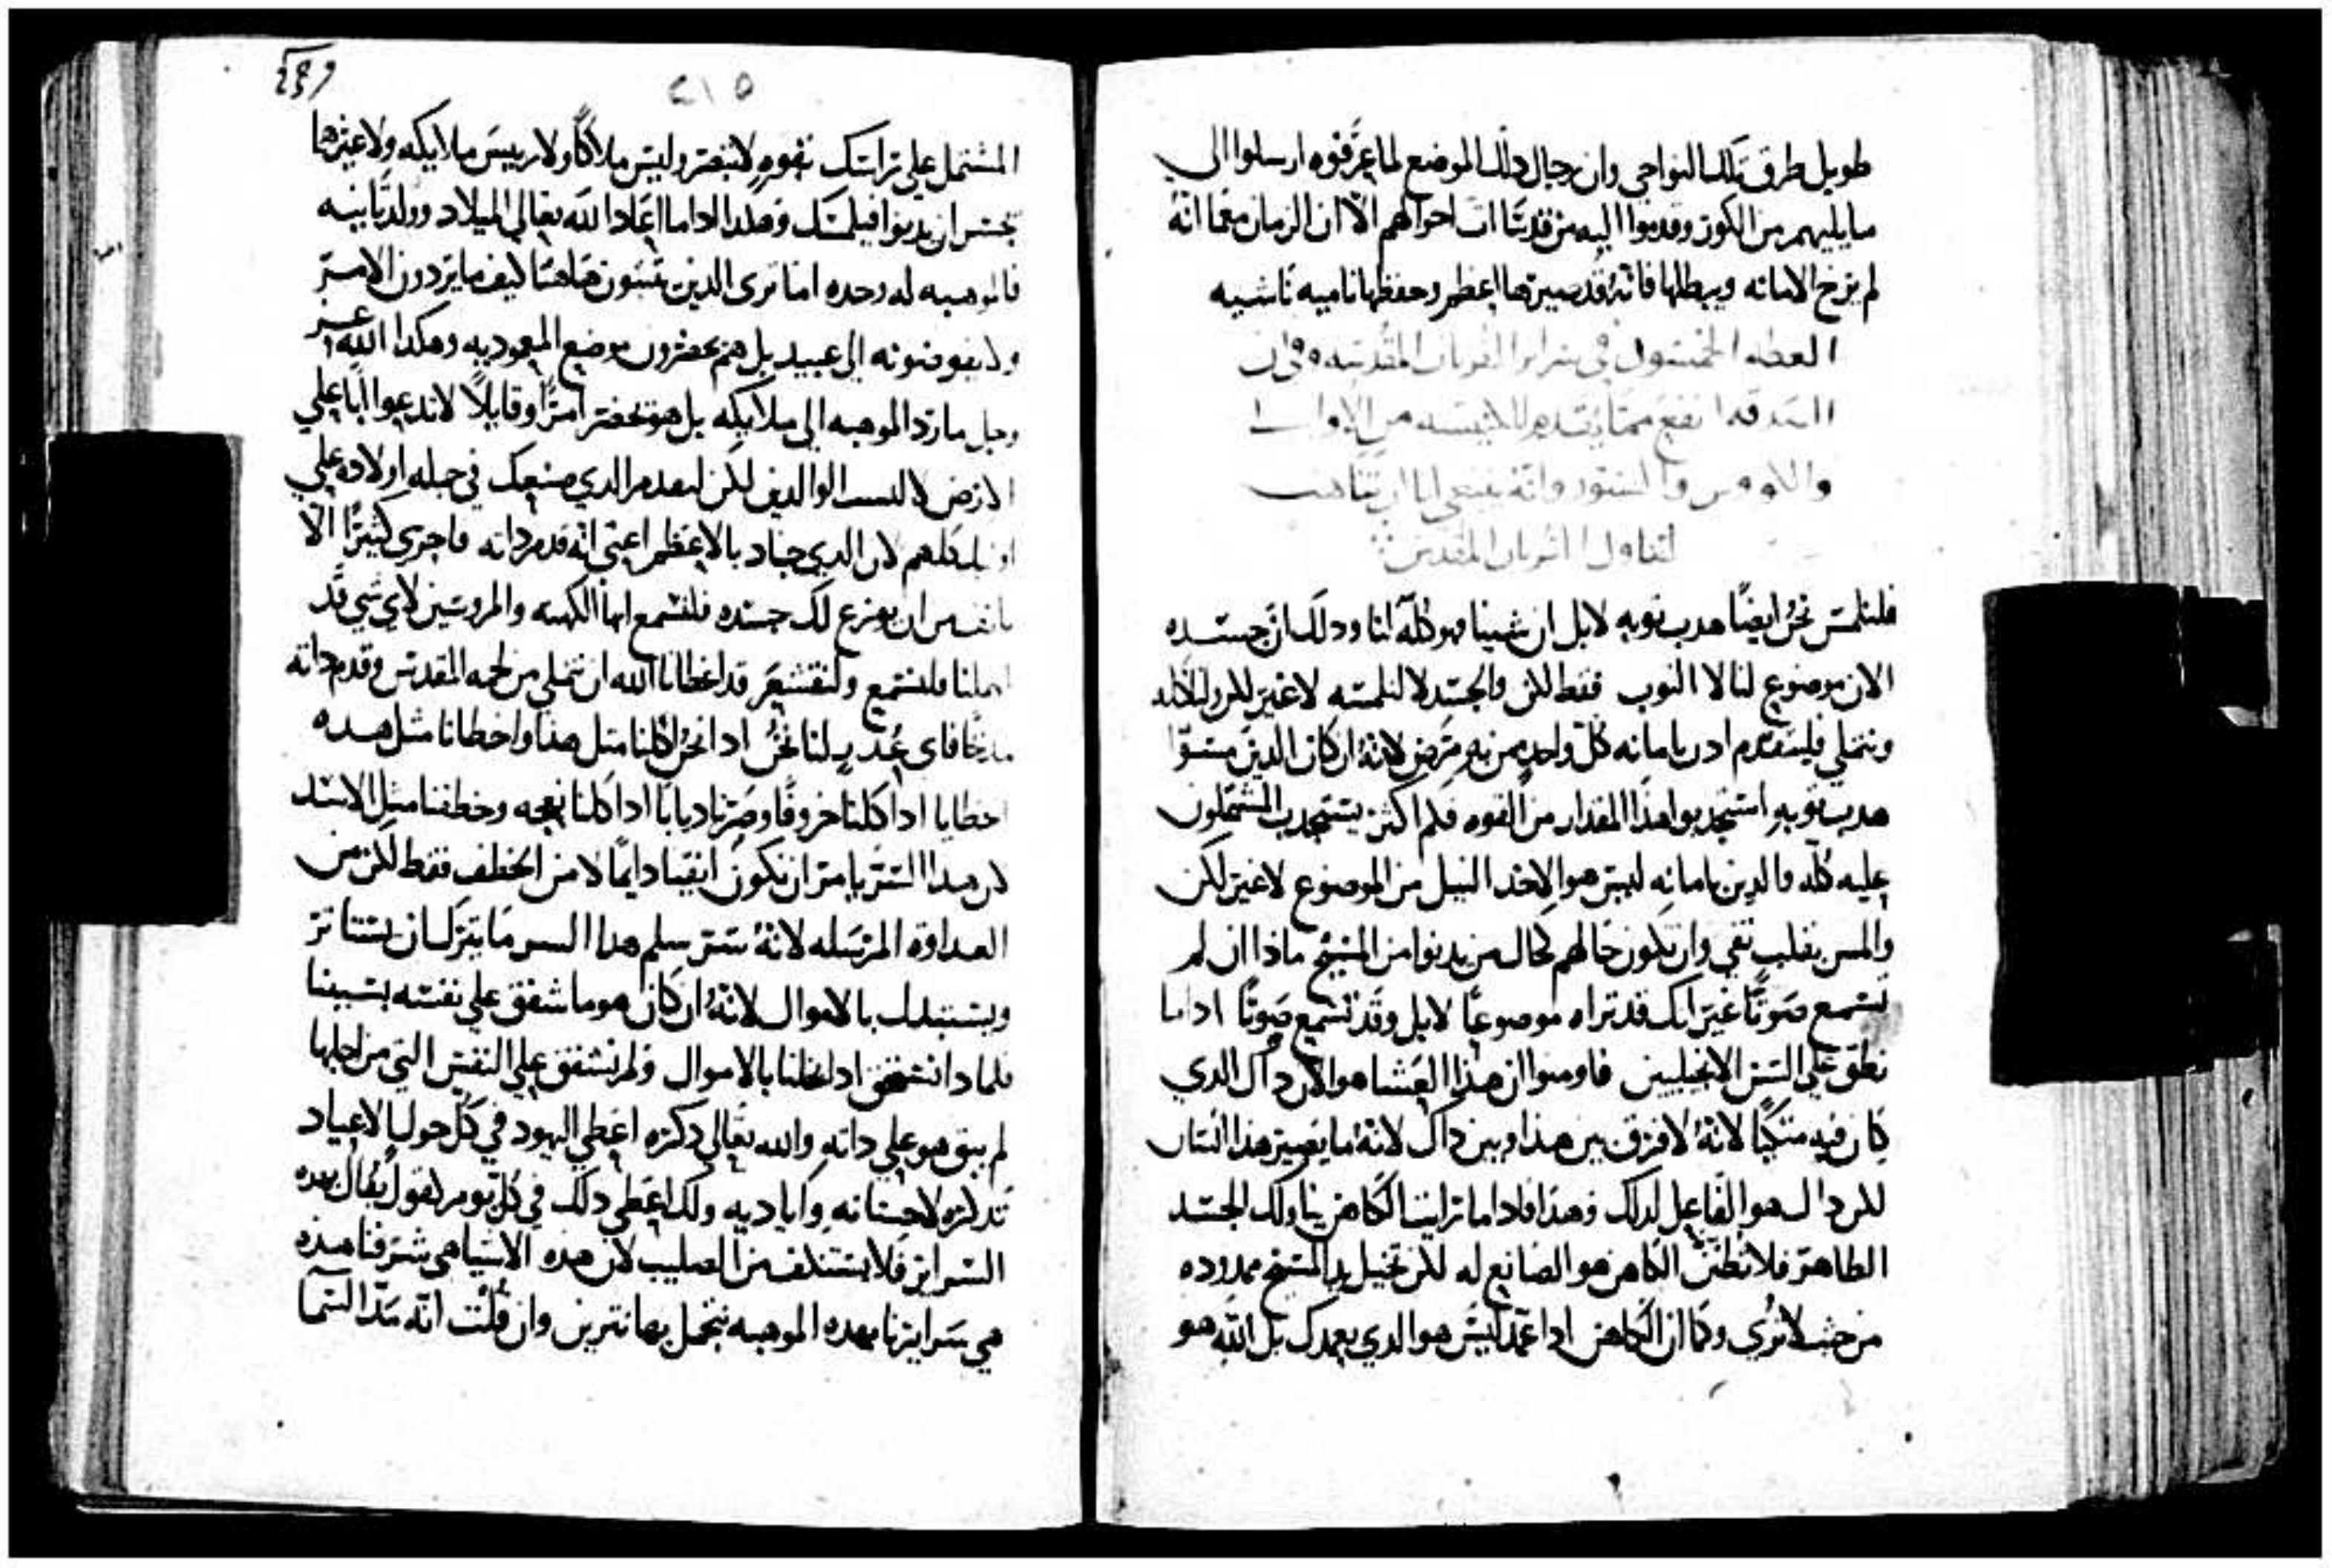 طويل طرق تلك النواحي وان رجال دلك الموضع لما عرفوه ارسلوا الي
ما يليهم من الكور وقدموا اليه من قد اسات احوالهم الا ان الزمان معما انه
لم يزح الامانه ويبطلها فانه قد صيرها اعظم وحفظها ناميه ناشيه
العظه الخمسون في سراير القربان المقدسه وفي ان
الصدقه انفع مما يقدم للكنيسه من الاواني
والكووس والستور وانه ينبغي لنا ان نتاهب
لتناول القربان المقدس
فلنلمس نحن ايضًا هدب ثوبه لا بل ان شينا فهو كله لنا ودلك ان جسده
الان موضوع لنا لا الثوب فقط لكن والجسد لا لنلمسه لا غير لكن لناكله
ونتملي فليتقدم ادن بامانه كل واحد ممن به مرض لانه ان كان الدين مسوا
هدب ثوبه استجدبوا هذا المقدار من القوه فكم اكثر يستجدب المشتملون
عليه كله والدين بامانه ليس هو الاخد النيل من الموضوع لا غير لكن
والمس بقلب نقي وان تكون حالهم كحال من يدنوا من المسيح ماذا ان لم
تسمع صوتًا غير انك قد تراه موضوعًا لا بل وقد تسمع صوتًا اداما
نطق علي السن الانجيليين فاومنوا ان هذا العشا هو الان داك الدي
كان فيه متكيًا لانه لا فرق بين هذا وبين داك لانه ما يصير هذا انسان
لكن داك هو الفاعل لدلك وهذا فاداما رايت الكاهن يناولك الجسد
الطاهر فلا تظنن الكاهن هو الصانع له لكن تخيل يد المسيح ممدوده
من حيث لا تري وكما ان الكاهن اداعمد ليس هو الدي يعمدك بل الله هو
٤٤٩
٢١٥
المشتمل علي راسك بقوه لا تبصر وليس ملاكًا ولا رييس ملايكه ولا غيرها
يجسر ان يدنوا فيلمسك وهكدا اداما اعاد الله تعالي الميلاد وولد ثانيه
فالموهبه له وحده اما تري الدين يتبنون هاهنا كيف ما يردون الامر
ولا يفوضونه الي عبيد بل هم يحضرون موضع المعموديه وهكدا الله عز
وجل ما رد الموهبه الي ملايكه بل هو يحضر امرًا وقايلًا لا تدعوا ابًا علي
الارض لا لسب الوالدين لكن لتقدم الدي صنعك في جمله اولاده علي
اوليك كلهم لان الدي جاد بالاعظم اعني انه قدم داته فاحري كثيرًا الا
يانف من ان يوزع لك جسده فلنسمع ايها الكهنه والمروسين لاي شي قد
اهلنا فلنسمع ولنقشعر قد اعطانا الله ان نتملي من لحمه المقدس وقدم داته
مدبحًا فاي عدر لنا نحن ادا نحن اكلنا مثل هدا واخطانا مثل هده
الخطايا ادا كلنا خروفًا وصرنا ديابًا ادا كلنا نعجه وخطفنا مثل الاسد
لان هدا السر يامر ان نكون انقيا دايمًا لا من الخطف فقط لكن من
العداوه المرسله لانه سر سلم هدا السر ما يترك ان يستاثر
ويستبدل بالاموال لانه ان كان هو ما شفق علي نفسه بسببنا
فلمادا نستحق ادا بخلنا بالاموال ولم نشفق علي النفس التي من اجلها
لم يبق هو علي داته والله تعالي دكره اعطي اليهود في كل حول الاعياد
تدكره لاحسانه واياديه ولك اعطي دلك في كل يوم لقول يقال بهده
السراير فلا تستنكف من الصليب لان هده الاشيا هي شرفنا هده
هي سرايرنا بهده الموهبه نتجمل بها نتزين وان قلت انه مد السما